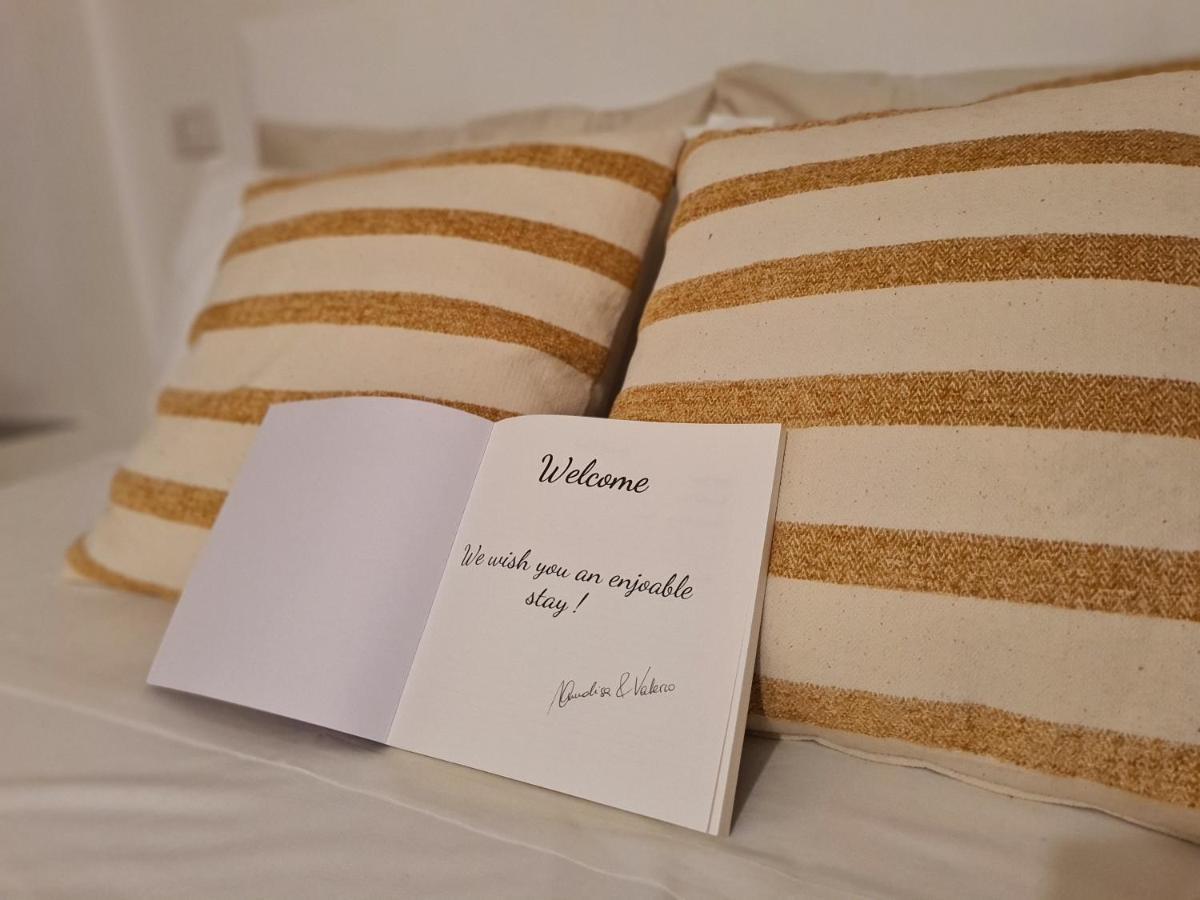 Welcome
We wish you an enjoable
stay !
& Valerio